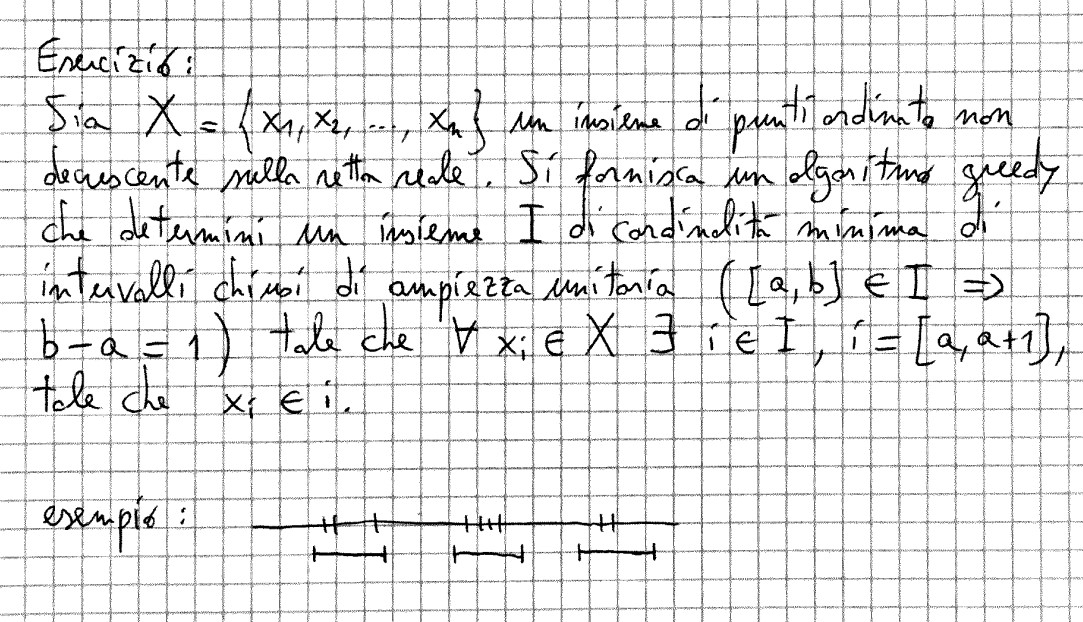 Esercizio:
Sia X = {x₁, x₂, ..., xₙ} un insieme di punti ordinato non
decrescente sulla retta reale. Si fornisca un algoritmo greedy
che determini un insieme I di cardinalità minima di
intervalli chiusi di ampiezza unitaria ([a,b] ∈ I ⇒
b-a = 1) tale che ∀ xᵢ ∈ X ∃ i ∈ I, i = [a, a+1],
tale che xᵢ ∈ i.
esempio: